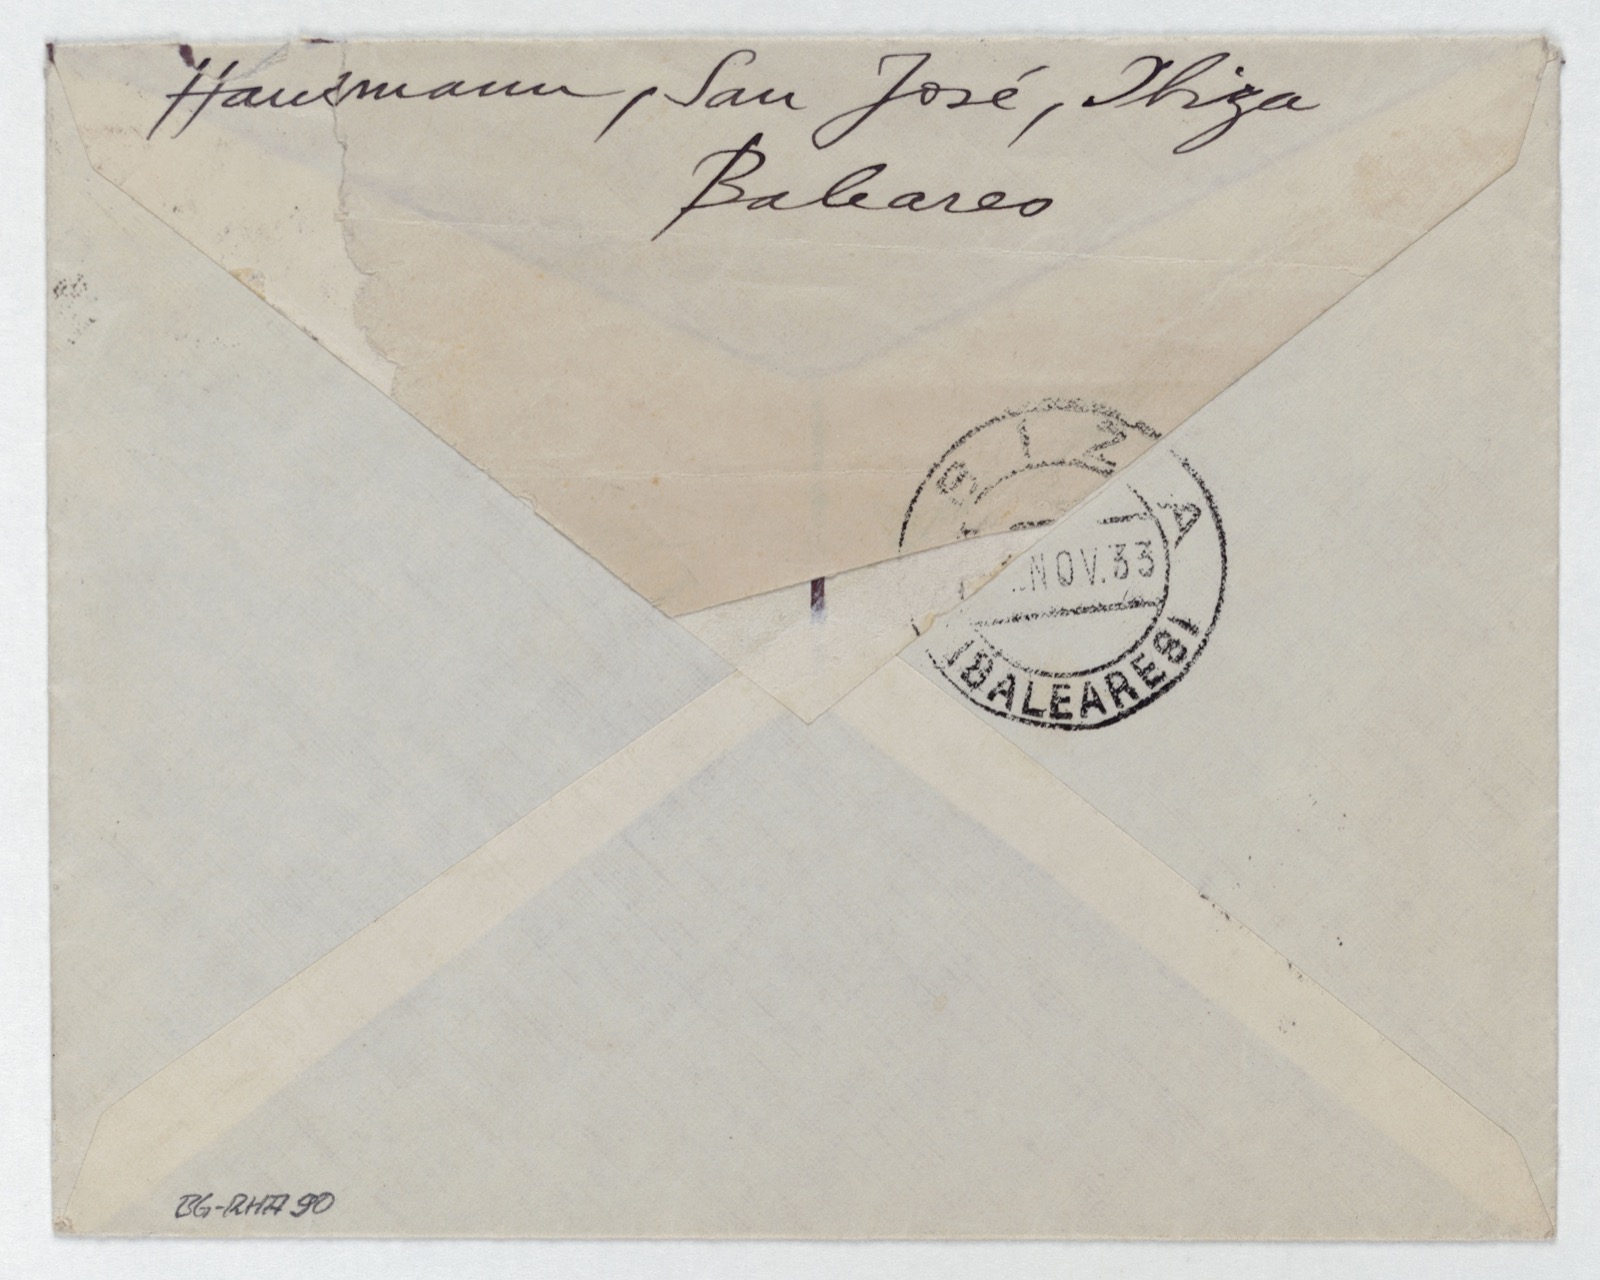 Hausmann, San José, Ibiza
Baleares
IBIZA
NOV.33
(BALEARES)
BG-RHA 90